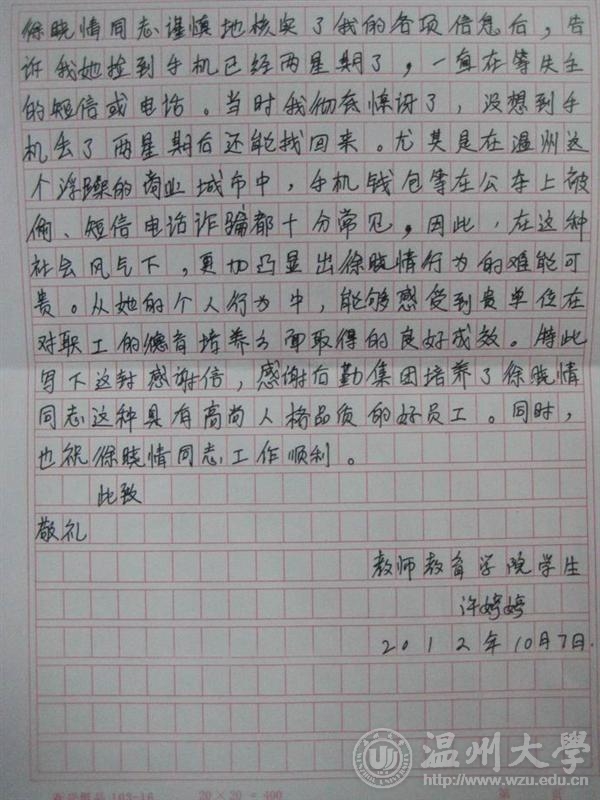 徐晓情同志谨慎地核实了我的各项信息后，告
诉我她捡到手机已经两星期了，一直在等失主
的短信或电话。当时我彻底惊讶了，没想到手
机丢了两星期后还能找回来。尤其是在温州这
个浮躁的商业城市中，手机钱包等在公车上被
偷、短信电话诈骗都十分常见，因此，在这种
社会风气下，更加凸显出徐晓情行为的难能可
贵。从她的个人行为中，能够感受到贵单位在
对职工的德育培养方面取得的良好成效。特此
写下这封感谢信，感谢后勤集团培养了徐晓情
同志这种具有高尚人格品质的好员工。同时，
也祝徐晓情同志工作顺利。
此致
敬礼
教师教育学院学生
许婷婷
2012年10月7日.
103-16 20×20=400 第 页
温州大学
http://www.wzu.edu.cn